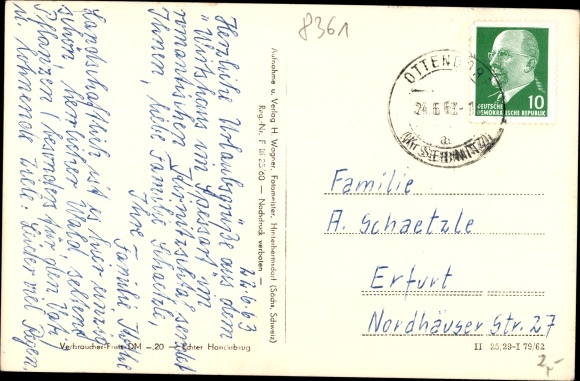 8361
24.6.63
Herzliche Urlaubsgrüße aus dem
"Wirtshaus im Spessart" im
romantischen Kirnitzschtal sendet
Ihnen, liebe Familie Schaetzle,
Ihre Familie
Landschaftlich ist es hier einmalig
schön, herrlicher Wald, seltene
Pflanzen (besonders für den Vati)
u. lohnende Ziele. Leider viel Regen.
Aufnahme u. Verlag H. Wagner, Fotomeister, Hinterhermsdorf (Sächs. Schweiz)
Reg.-Nr. F III 25 60 — Nachdruck verboten —
Verbraucher-Preis DM —,20 — Echter Handabzug
OTTENDORF
24.6.63
DEUTSCHE
DEMOKRATISCHE REPUBLIK
10
Familie
A. Schaetzle
Erfurt
Nordhäuser Str. 27
II 25,29-I 79/62
2,-